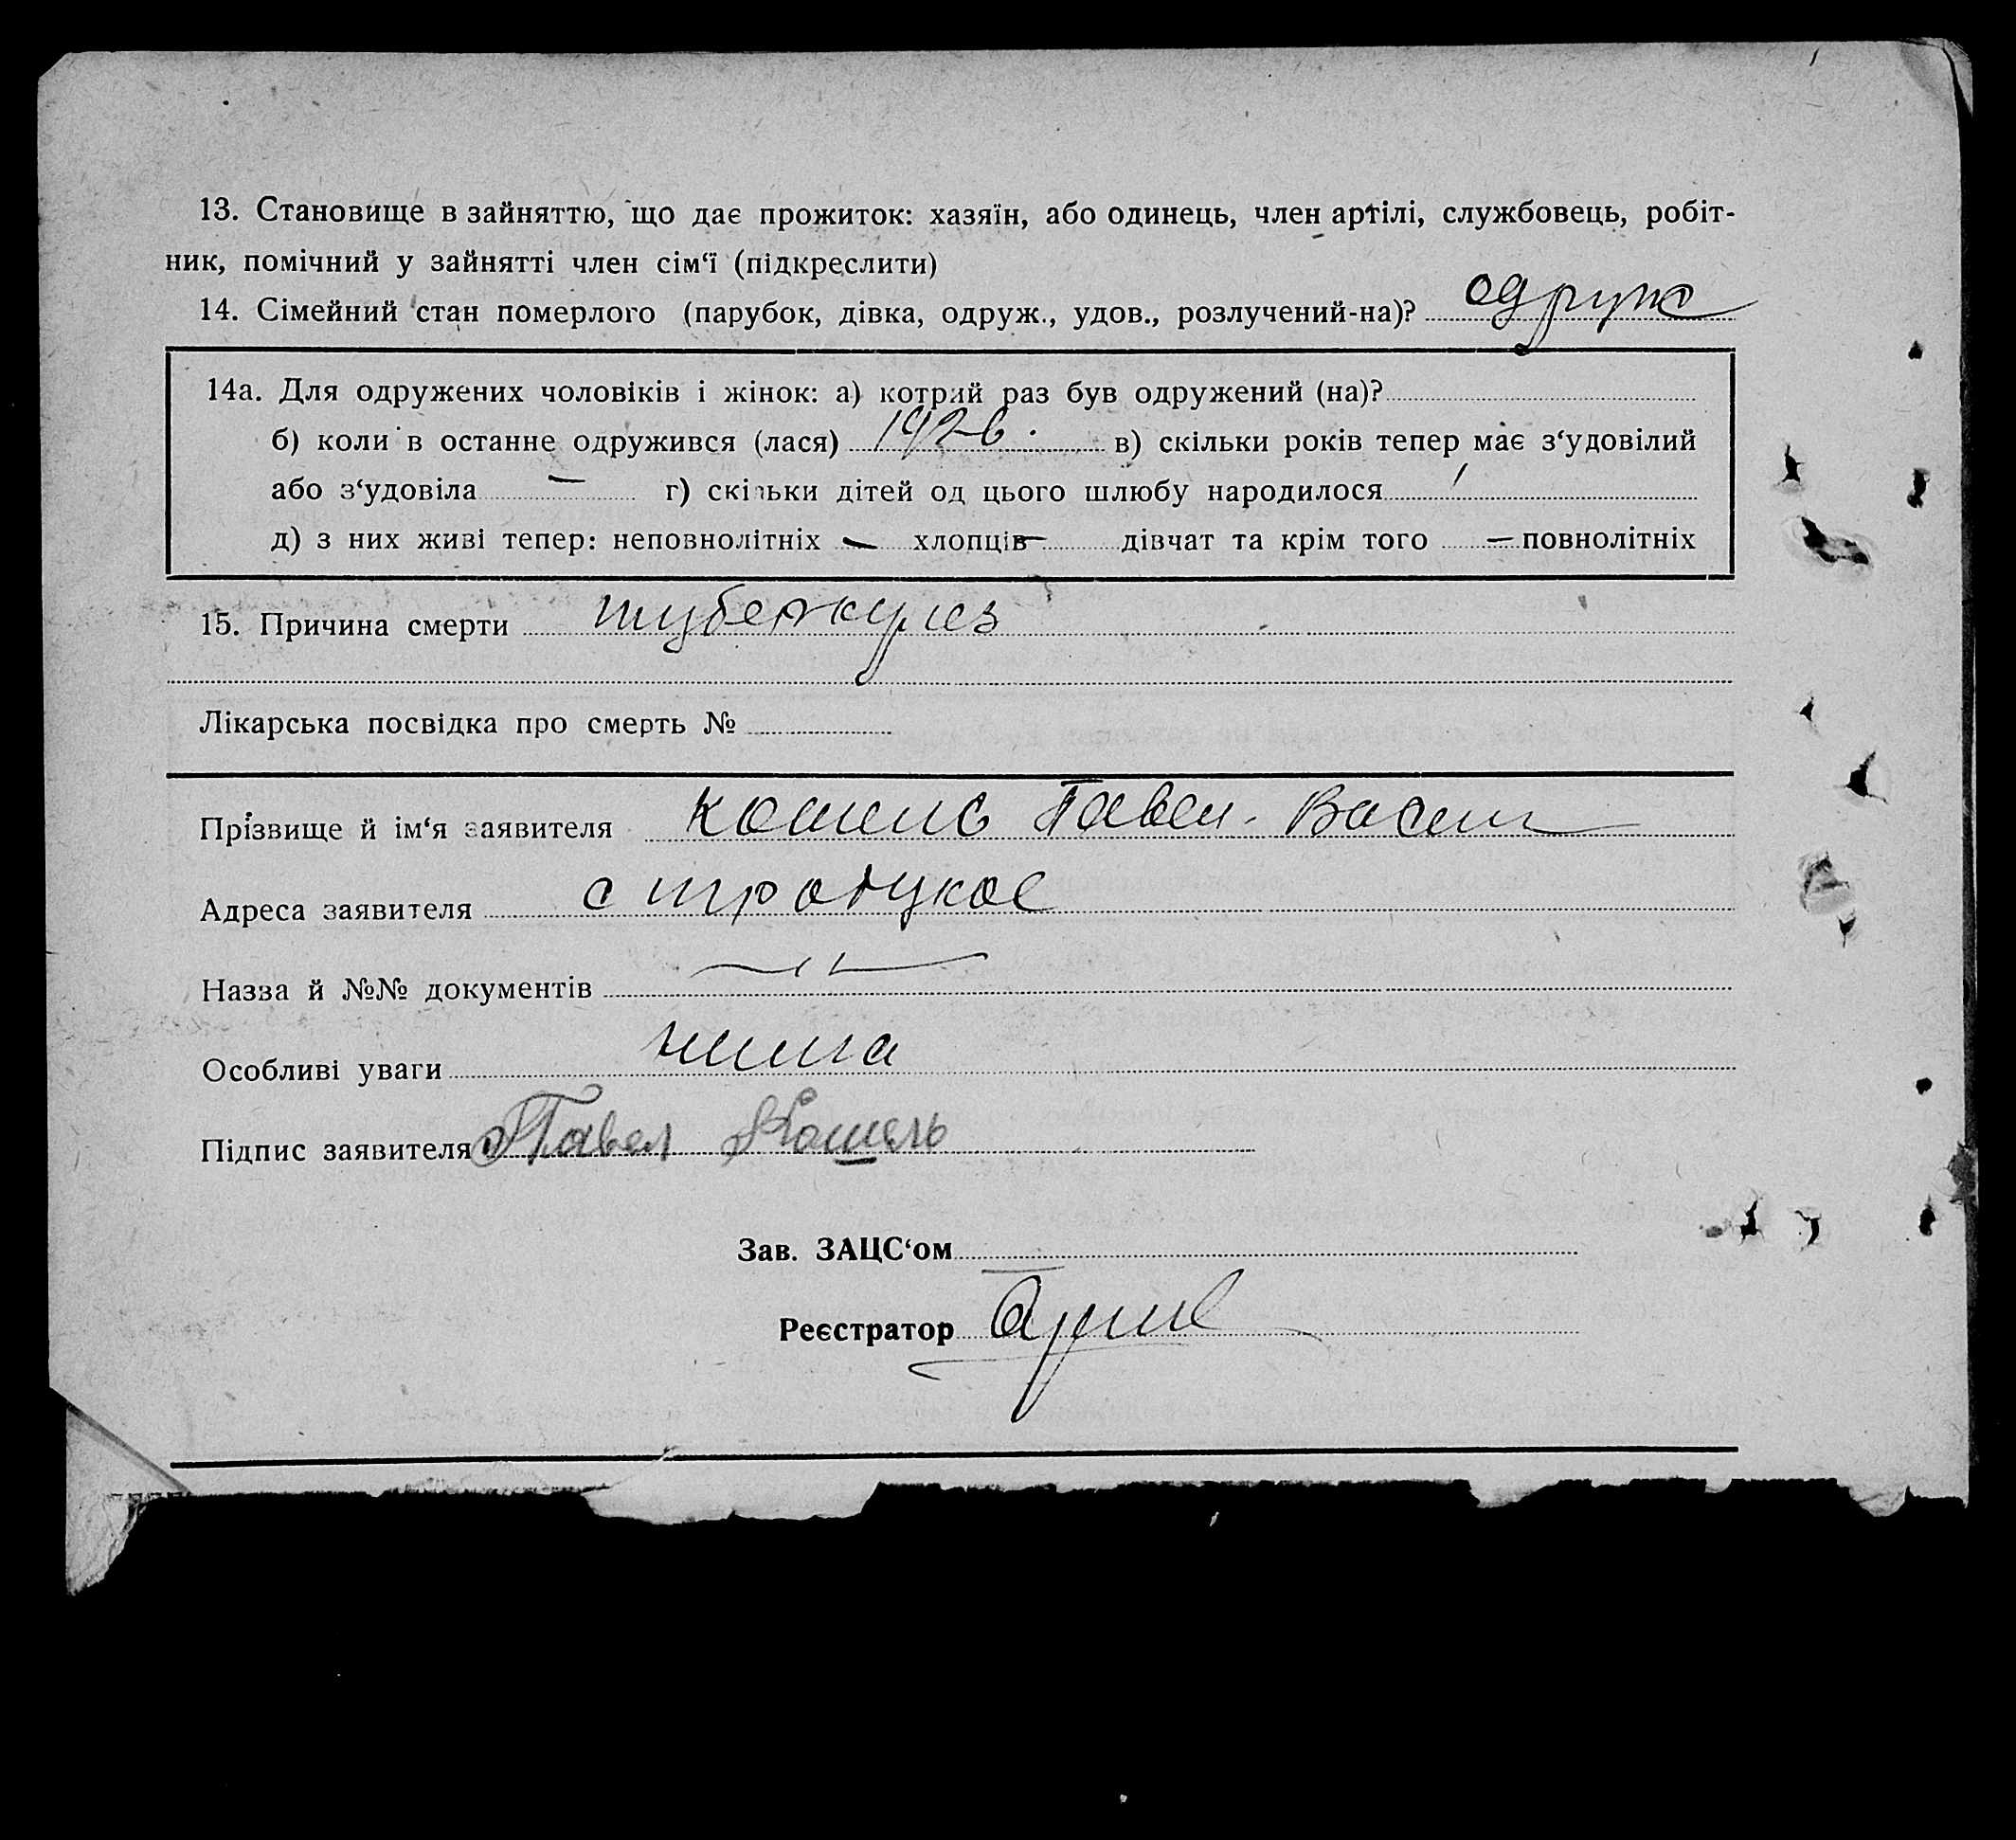 13. Становище в зайняттю, що дає прожиток: хазяїн, або одинець, член артілі, службовець, робіт-
ник, помічний у зайнятті член сім‘ї (підкреслити)
14. Сімейний стан померлого (парубок, дівка, одруж., удов., розлучений-на)? одруж
14а. Для одружених чоловіків і жінок: а) котрий раз був одружений (на)?
б) коли в останнє одружився (лася) 1926. в) скільки років тепер має з‘удовілий
або з‘удовіла — г) скільки дітей од цього шлюбу народилося
д) з них живі тепер: неповнолітніх — хлопців — дівчат та крім того — повнолітніх
15. Причина смерти туберкулез
Лікарська посвідка про смерть №
Прізвище й ім‘я заявителя Кошель Павел Васил
Адреса заявителя с Троицкое
Назва й №№ документів
Особливі уваги нима
Підпис заявителя Павел Кошель
Зав. ЗАЦС‘ом
Реєстратор